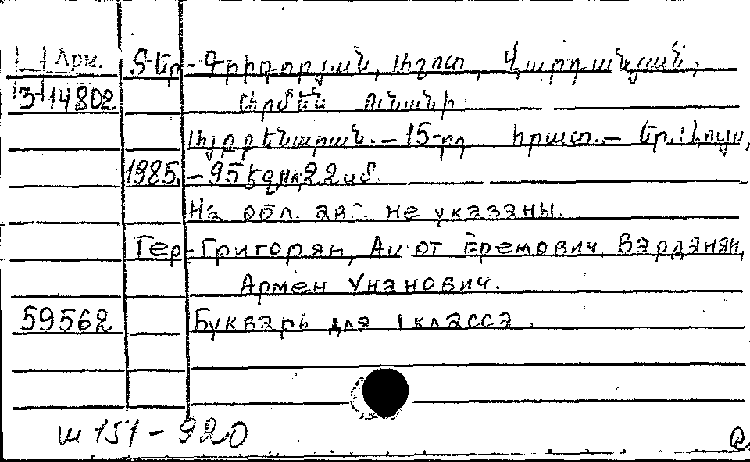 Арм. Տեր-Գրիգորյան, Աշոտ, Վարդանյան,
3-14802 Արմեն Ունանի
Այբբենարան. – 15-րդ հրատ. – Եր.: Լույս,
1985. – 95 էջ, նկ. 22 սմ.
На обл. авт. не указаны.
Тер-Григорян, Ашот Еремович, Варданян,
Армен Унанович.
59562 Букварь для 1 класса.
ш 151-920